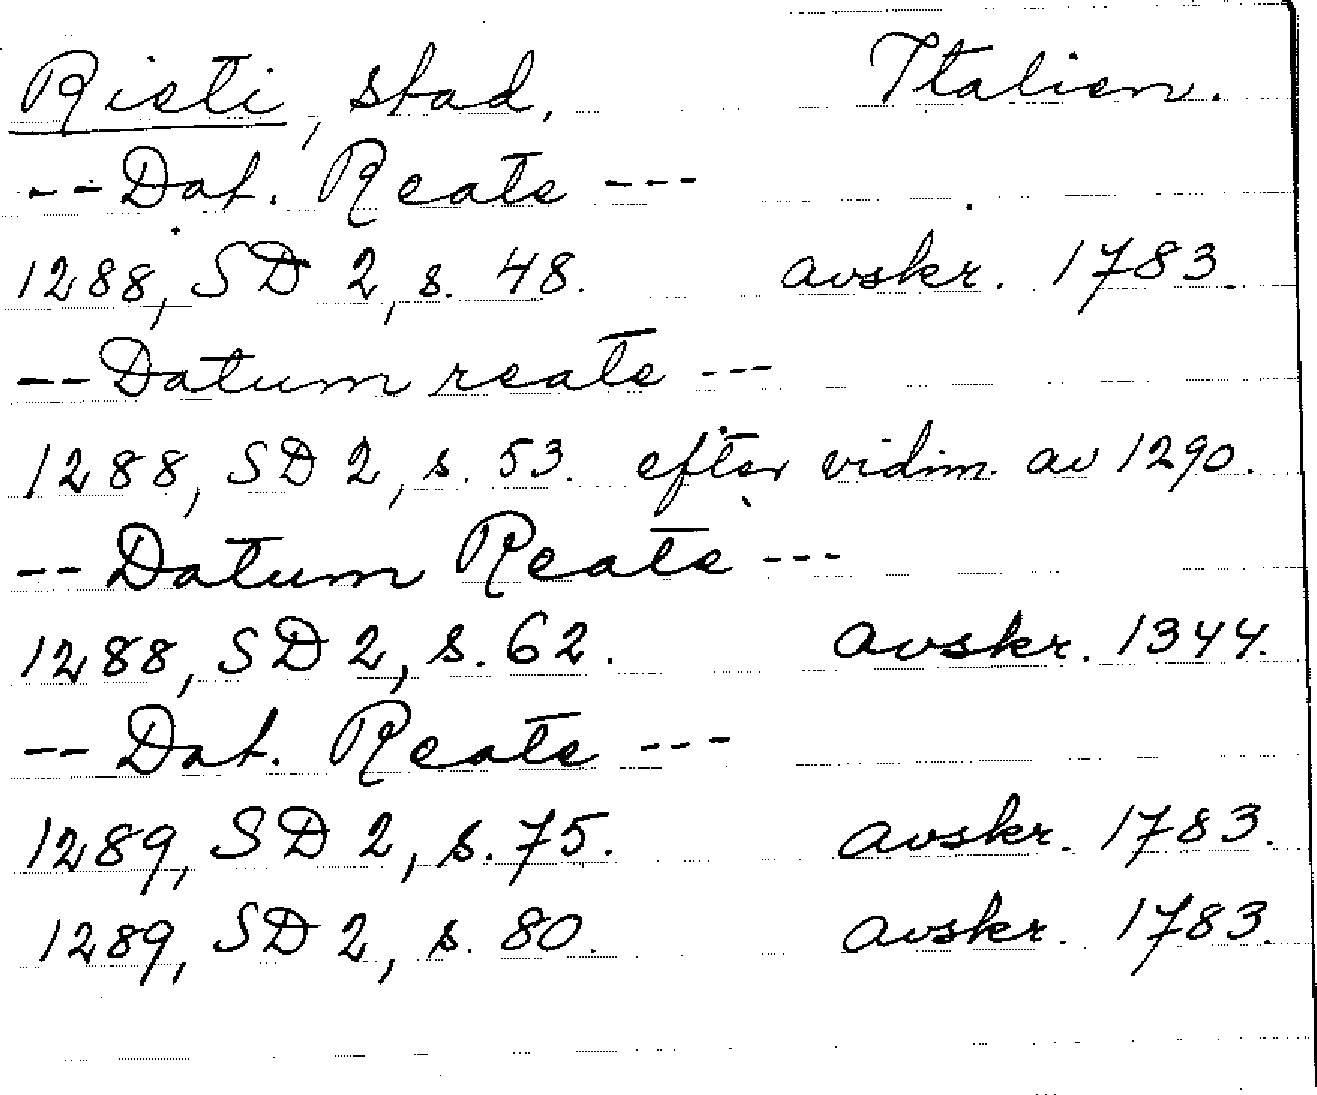 Risti, stad, Italien.
-- Dat. Reate ---
1288, SD 2, s. 48. avskr. 1783.
-- Datum reate ---
1288, SD 2, s. 53. efter vidim. av 1290.
-- Datum Reate ---
1288, SD 2, s. 62. avskr. 1344.
-- Dat. Reate ---
1289, SD 2, s. 75. avskr. 1783.
1289, SD 2, s. 80. avskr. 1783.